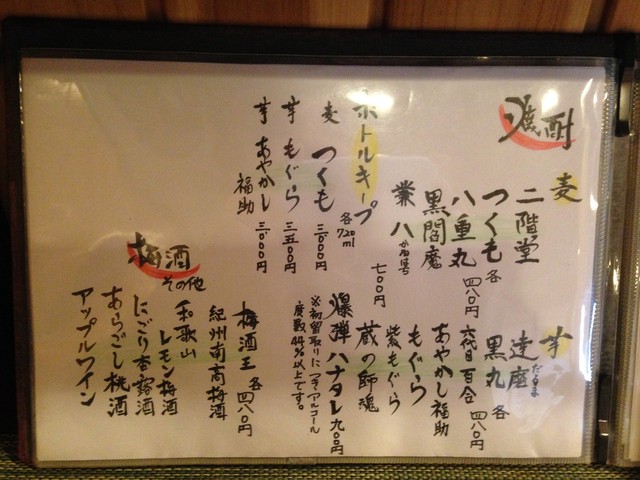 焼酎
麦
二階堂
つくも 各
八重丸 四八〇円
黒閻魔
兼八
七〇〇円
芋
達磨 だるま
黒丸 各
六代目百合 四八〇円
あやかし福助
もぐら
紫もぐら
蔵の師魂
爆弾ハナタレ 九〇〇円
※初留取りにつきアルコール
度数44%以上です。
ボトルキープ
各720ml
麦 つくも 三〇〇〇円
芋 もぐら 三五〇〇円
芋 あやかし
福助 三〇〇〇円
梅酒
その他
梅酒王 各四八〇円
紀州南高梅酒
和歌山
レモン梅酒
にごり杏露酒
あらごし桃酒
アップルワイン